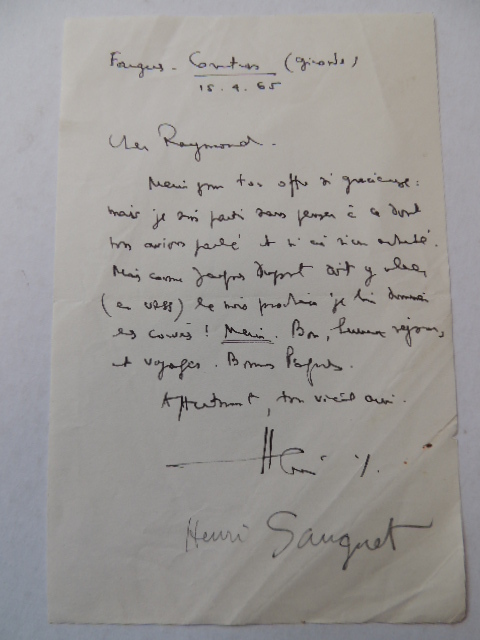 Coutras (Gironde)
15.4.65
Cher Raymond.
Merci pour ton offre si gracieuse :
mais je suis parti sans penser à ce dont
nous avions parlé et n'ai rien acheté.
Mais comme Jacques Dupont doit y aller
(en URSS) le mois prochain je lui donnerai
les ! Merci. Bon, heureux séjour,
et voyages. Bonnes Pâques.
Affectueusement, ton vieil ami.
Henri
Henri Sauguet